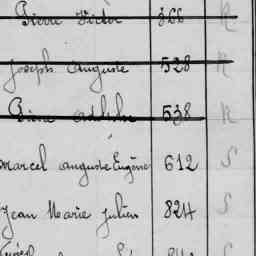 Pierre Victor 366 R
Joseph Auguste 528 R
Pierre 538 R
Marcel Auguste Eugène 612 S
Jean Marie Julien 824 S